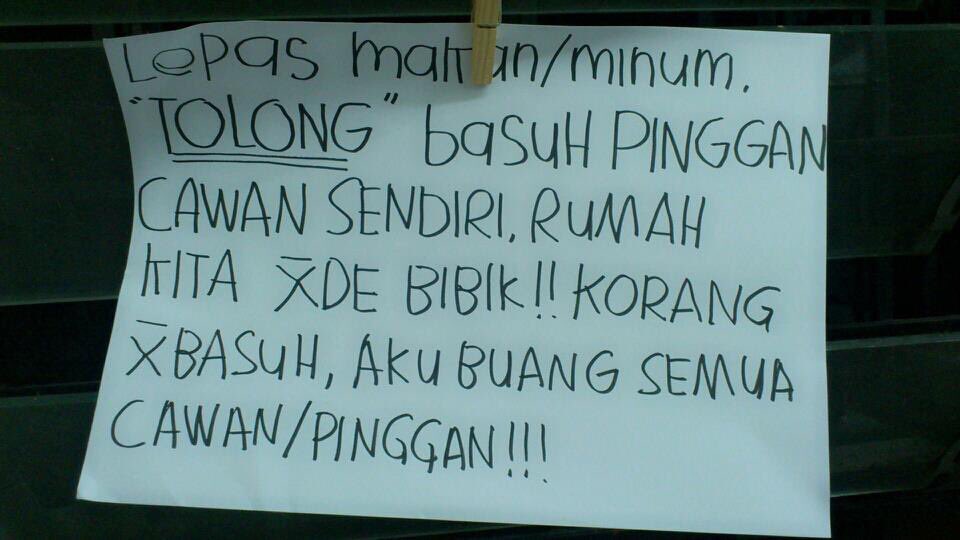 Lepas makan/minum.
"TOLONG" basuH PINGGAN
CAWAN SENDIRI. RUMAH
KITA X̅DE BIBIK!! KORANG
X̅BASUH, AKU BUANG SEMUA
CAWAN/PINGGAN!!!